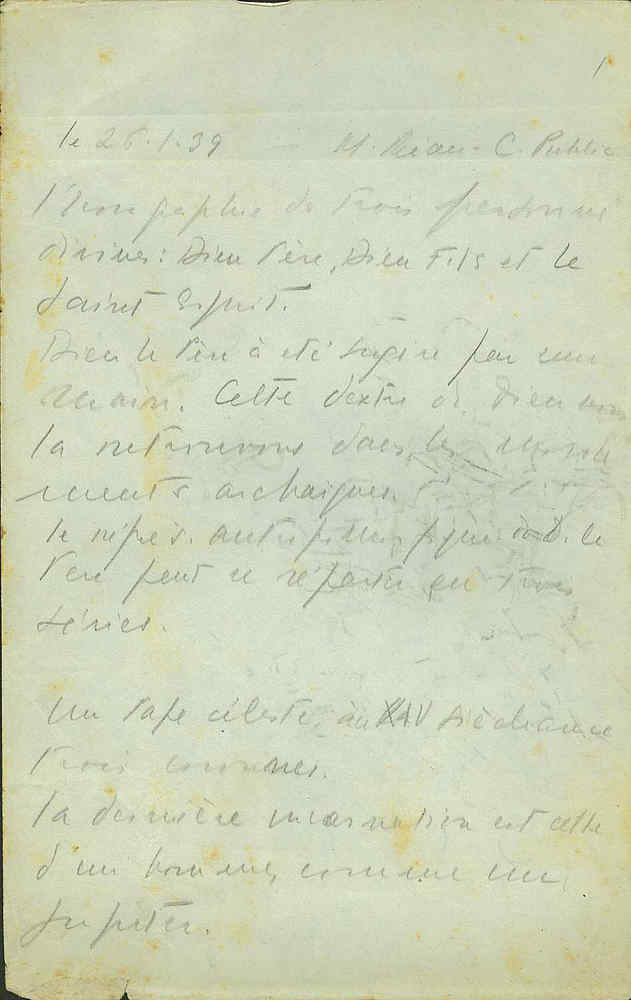 1
le 26.1.39 M. Réau - C. Public
l'Iconographie de trois personnes
divines: Dieu Père, Dieu Fils et le
Saint Esprit.
Dieu le Père a été figuré par une
main. Cette dextre de Dieu nous
la retrouvons dans les monu
ments archaiques.
le représ. antropomorphique de D. le
Père peut se répartir en trois
séries.
Un Pape céleste, au XIV siècle avec
trois couronnes.
la dernière incarnation est celle
d'un homme, comme un
Jupiter.